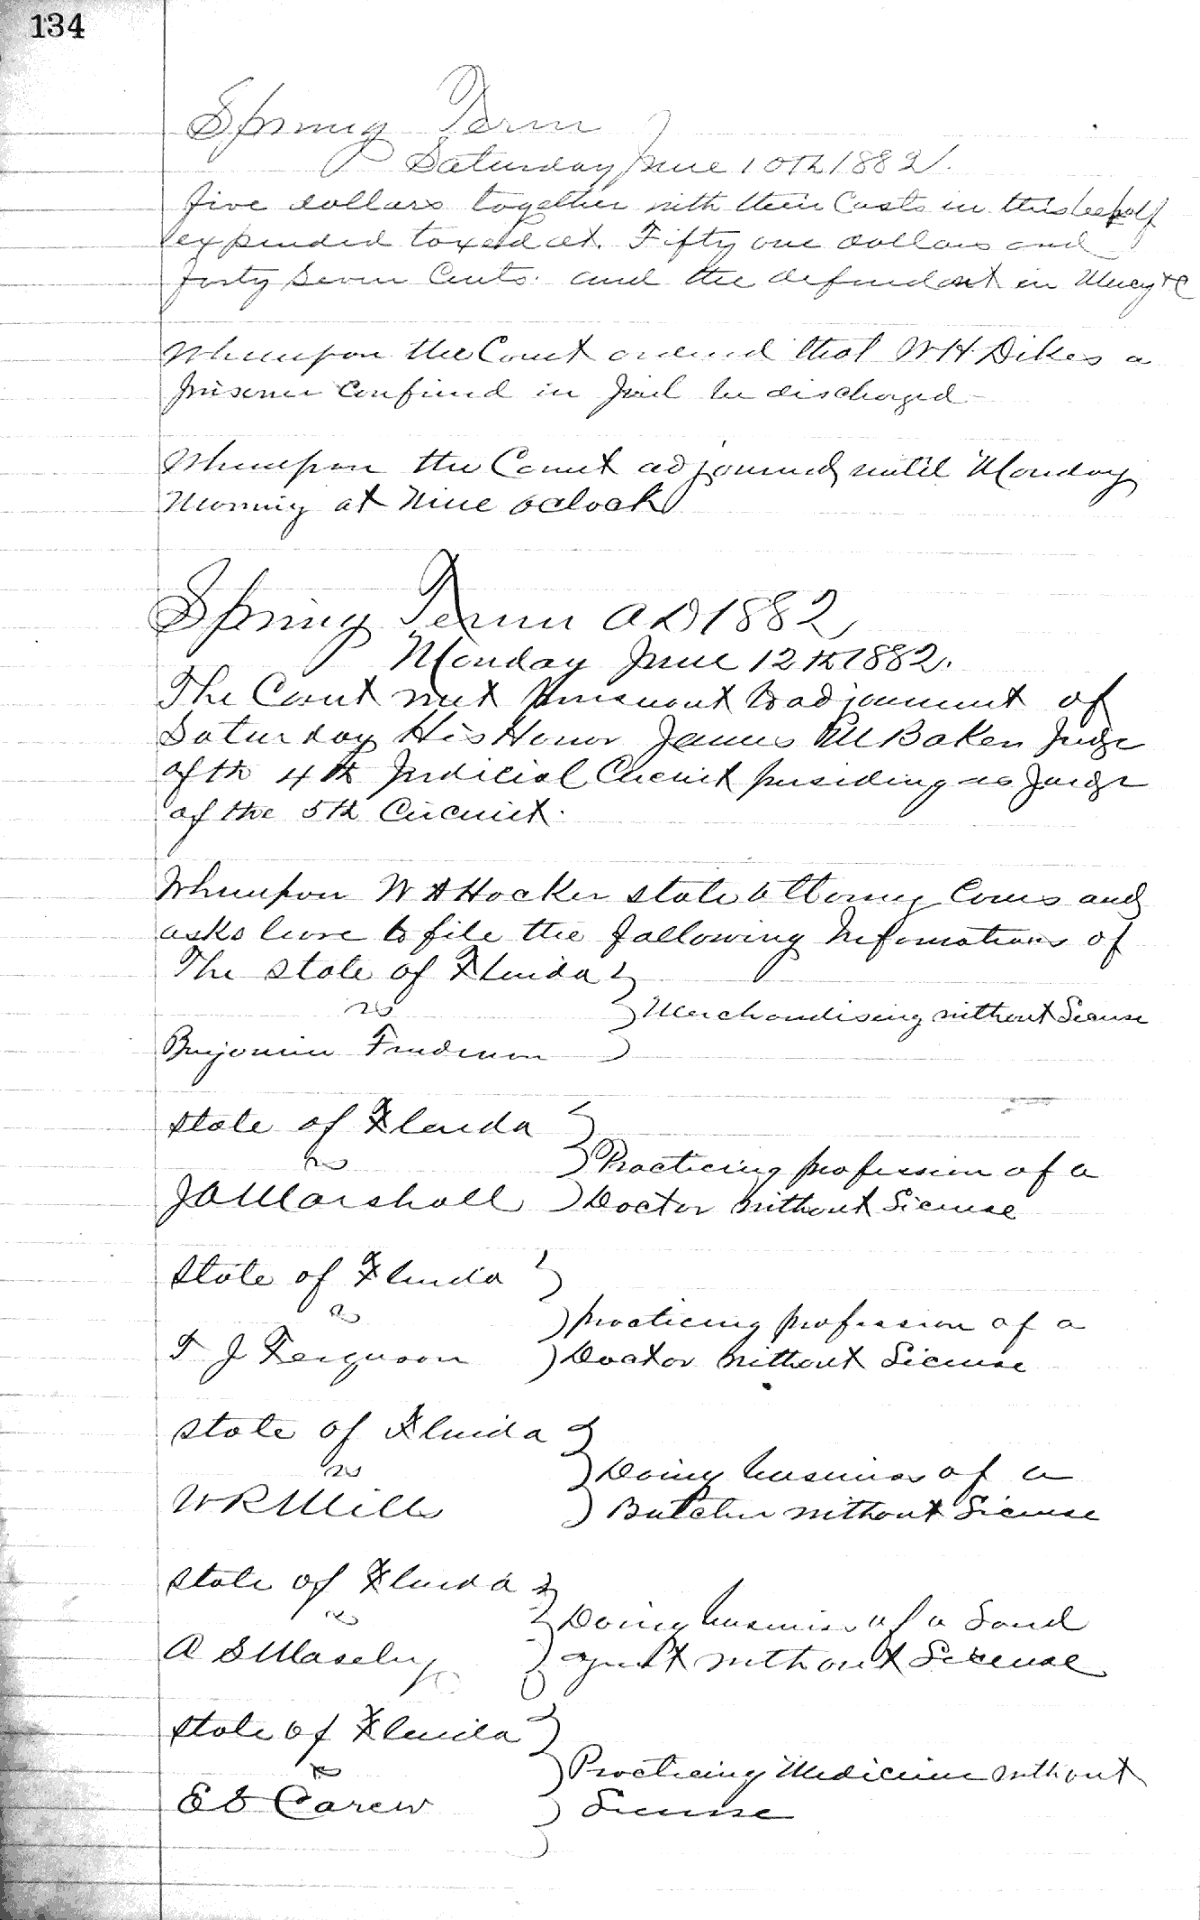 134
Spring Term
Saturday June 10th 1882.
five dollars together with their Costs in this behalf
expended taxed at Fifty one dollars and
forty Seven Cents. and the defendant in Mercy &C
Whereupon the Court ordered that W H Dikes a
prisoner confined in Jail be discharged
Whereupon the Court adjourned until Monday
Morning at Nine oclock
Spring Term A D 1882
Monday June 12th 1882.
The Court met pursuant to adjournment of
Saturday His Honor James M Baker Judge
of th 4th Judicial Circuit presiding as Judge
of the 5th Circuit.
Whereupon W A Hocker state attorney Comes and
asks leave to file the following Informations of
The State of Florida
vs
Merchandising without License
Benjamin Friedman
State of Florida
vs
Practicing profession of a
J A Marshall
Doctor without License
State of Florida
vs
practicing profession of a
T J Ferguson
Doctor without License
State of Florida
vs
Doing business of a
W R Mills
Butcher without License
State of Florida
vs
Doing business of a Land
A S Moseley
agent without License
State of Florida
vs
Practicing Medicine without
E S Carew
License